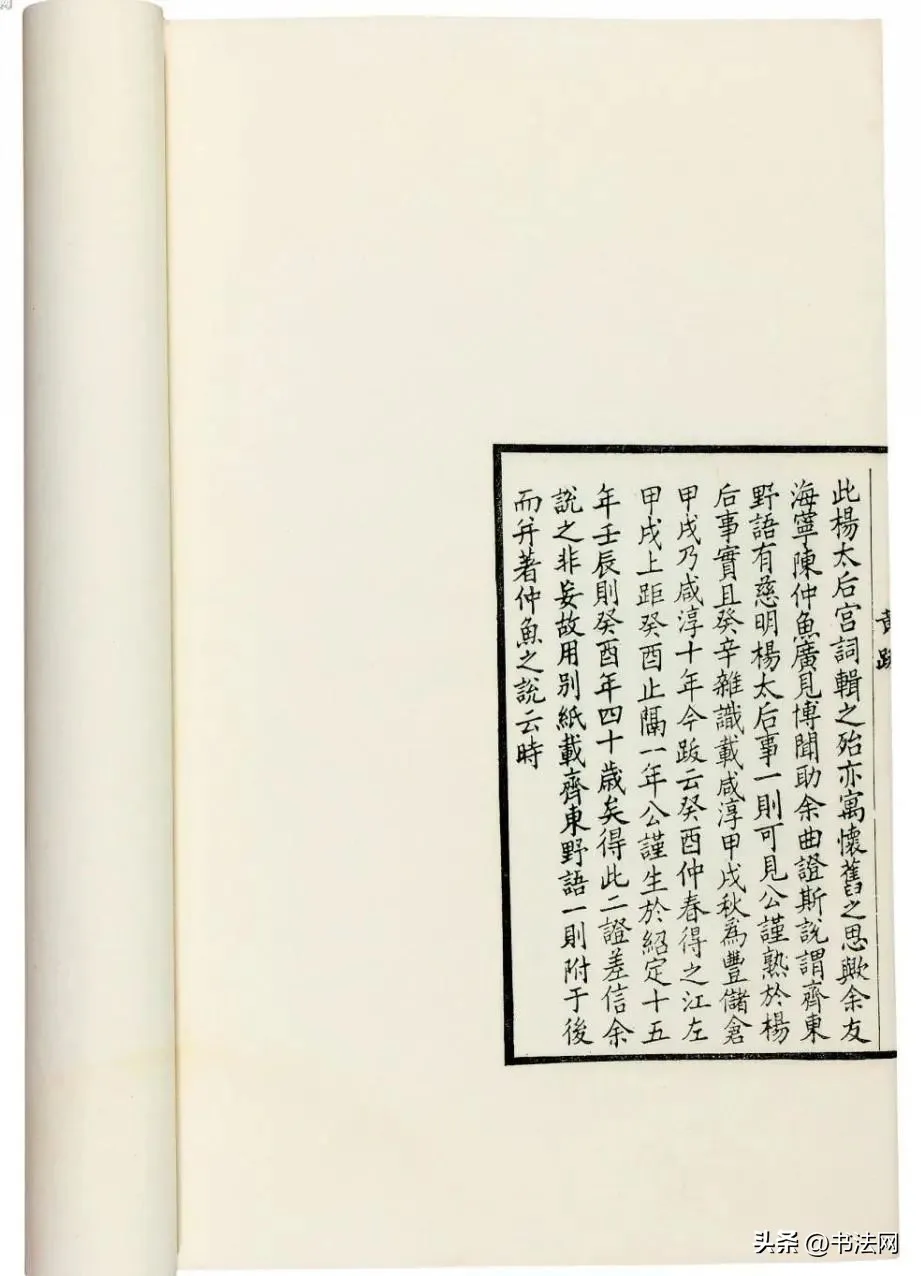 黄跋
此楊太后宫詞輯之殆亦寓懷舊之思歟余友
海寧陳仲魚廣見博聞助余曲證斯説謂齊東
野語有慈明楊太后事一則可見公謹熟於楊
后事實且癸辛雜識載咸淳甲戌秋為豐儲倉
甲戌乃咸淳十年今跋云癸酉仲春得之江左
甲戌上距癸酉止隔一年公謹生於紹定十五
年壬辰則癸酉年四十歲矣得此二證差信余
説之非妄故用別紙載齊東野語一則附于後
而并著仲魚之說云時
头条 @书法网